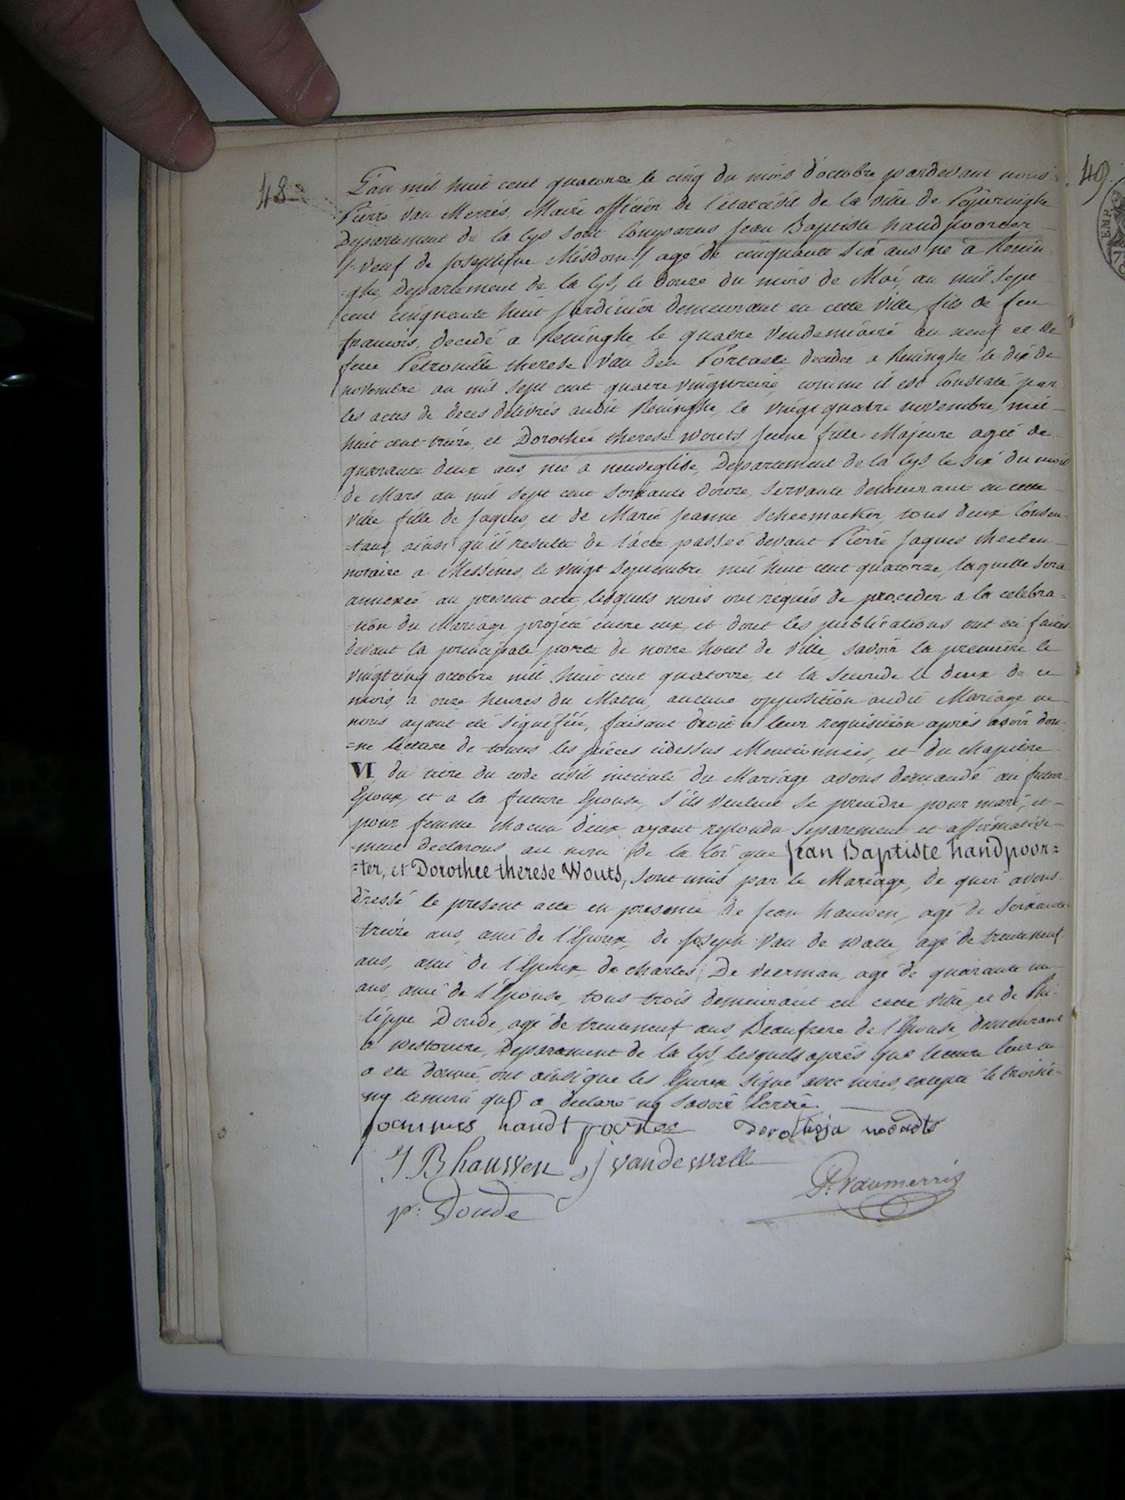 48
49
L'an mil huit cent quatorze le cinq du mois d'octobre pardevant nous
Pierre Van Merris, Maire officier de l'etat civil de la ville de Poperinghe
Departement de la Lys sont Comparus Jean Baptiste handpoorter
veuf de Josephine Misdom agé de cinquante six ans né à Renin-
-ghe, departement de la Lys, le douze du mois de Mai, an mil sept
cent cinquante huit Jardinier demeurant en cette ville, fils de feu
francois, decedé à Reninghe le quatre Vendemiaire an neuf et de
feue Petronille therese Van den decedee a Reninghe le dix de
novembre an mil sept cent quatre vingt treize, comme il est Constaté par
les actes de deces delivrés audit Reninghe, le vingt quatre novembre mil
huit cent treize, et Dorothée therese Wouts, Jeune fille Majeure agée de
quarante deux ans, née à neuveglise, Departement de la Lys le six du mois
de Mars an mil sept cent soixante douze, servante demeurant en cette
ville fille de Jaques, et de Marie Jeanne Scheemacker, tous deux Consen-
-tans, ainsi qu'il resulte de l'acte passé devant Pierre Jaques
notaire a Messines, le vingt septembre mil huit cent quatorze, laquelle sera
annexée au present acte, lesquels nous ont requis de proceder a la celebra-
-tion du Mariage projeté entre eux, et dont les publications ont été faites
devant la principale porte de notre hotel de ville, savoir la premiere le
vingt cinq octobre mil huit cent quatorze et la seconde le deux de ce
mois à onze heures du Matin, aucune opposition audit Mariage ne
nous ayant été signifiée, faisant droit a leur requisition après avoir don-
=né lecture de toutes les pièces cidessus Mentionnées, et du chapitre
VI du titre du code civil intitulé du Mariage avons demandé au futur
Epoux, et à la future Epouse, s'ils veulent se prendre pour mari, et
pour femme chacun d'eux ayant repondu separement et affirmative-
-ment declarons au nom de la loi que Jean Baptiste handpoor=
=ter, et Dorothee therese Wouts, sont unis par le Mariage, de quoi avons
dressé le present acte en presence de Jean hauwen, agé de soixante
treize ans, ami de l'Epoux, de Joseph Van de Walle, agé de trenteneuf
ans, ami de l'Epoux, de charles De veerman, agé de quarante un
ans, ami de l'Epouse, tous trois demeurant en cette ville, et de Phi-
lippe Doude, agé de trenteneuf ans, Beaufrere de l'Epouse, demeurant
a Westoutre, Departement de la Lys, lesquels après que lecture leur en
a été donnée, ont ainsi que les Epoux signé avec nous, excepté le troisie-
me temoin qui a declaré ny savoir Ecrire.
Joannes handt poorter
J B hauwen J vandewalle
P. Vanmerris
p: Doude